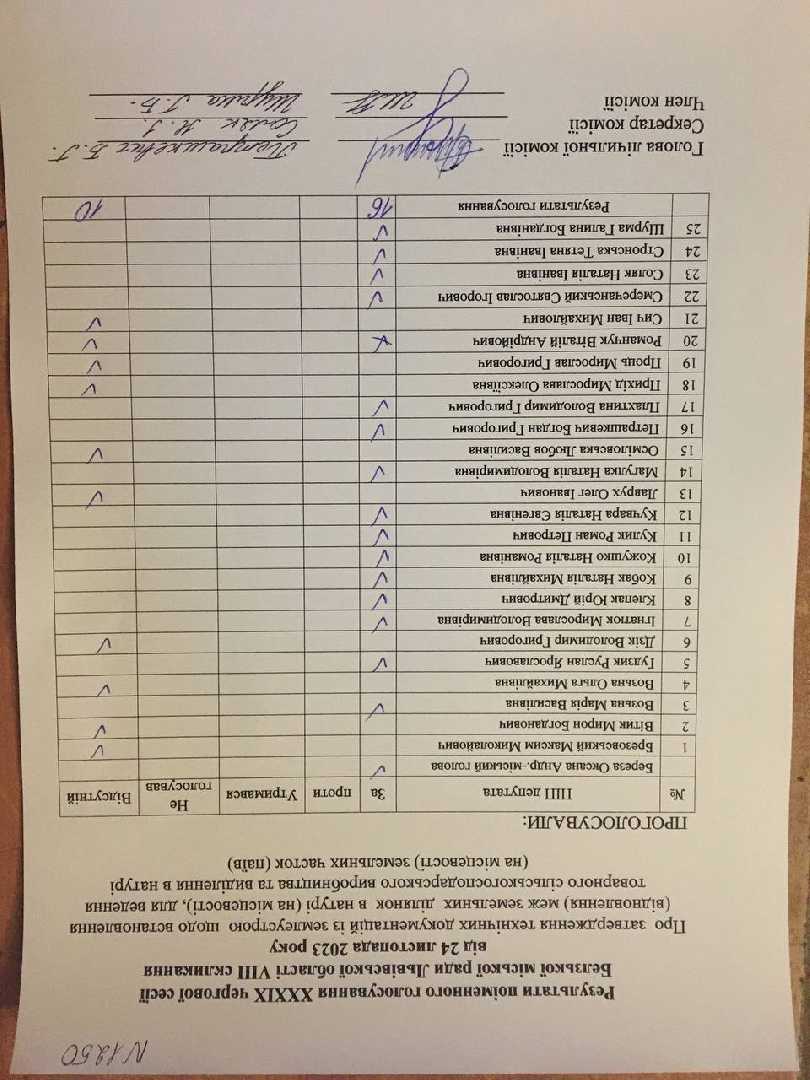 N 1250
Результати поіменного голосування XXXIX чергової сесії
Белзької міської ради Львівської області VIII скликання
від 24 листопада 2023 року
Про затвердження технічних документацій із землеустрою щодо встановлення
(відновлення) меж земельних ділянок в натурі (на місцевості), для ведення
товарного сільськогосподарського виробництва та виділення в натурі
(на місцевості) земельних часток (паїв)
ПРОГОЛОСУВАЛИ:
№ ПІП депутата За проти Утримався Не голосував Відсутній
Береза Оксана Андр.-міський голова V
1 Брезовський Максим Миколайович V
2 Вітик Мирон Богданович V
3 Возьна Марія Василівна V
4 Возьна Ольга Михайлівна V
5 Гудзик Руслан Ярославович V
6 Дзік Володимир Григорович V
7 Ігнатюк Мирослава Володимирівна V
8 Клепак Юрій Дмитрович V
9 Кобак Наталія Михайлівна V
10 Кожушко Наталія Романівна V
11 Кулик Роман Петрович V
12 Кучвара Наталія Євгенівна V
13 Лаврух Олег Іванович V
14 Магулка Наталія Володимирівна V
15 Осміловська Любов Василівна V
16 Петрашкевич Богдан Григорович V
17 Плахтина Володимир Григорович V
18 Прихід Мирослава Олексіївна V
19 Проць Мирослав Григорович V
20 Романчук Віталій Андрійович V
21 Сич Іван Михайлович V
22 Смеречанський Святослав Ігорович V
23 Соляк Наталія Іванівна V
24 Стронська Тетяна Іванівна V
25 Щурма Галина Богданівна V
Результати голосування 16 10
Голова лічильної комісії Петрашкевич Б.Г.
Секретар комісії Соляк Н.І.
Член комісії Щурма Г.Б.